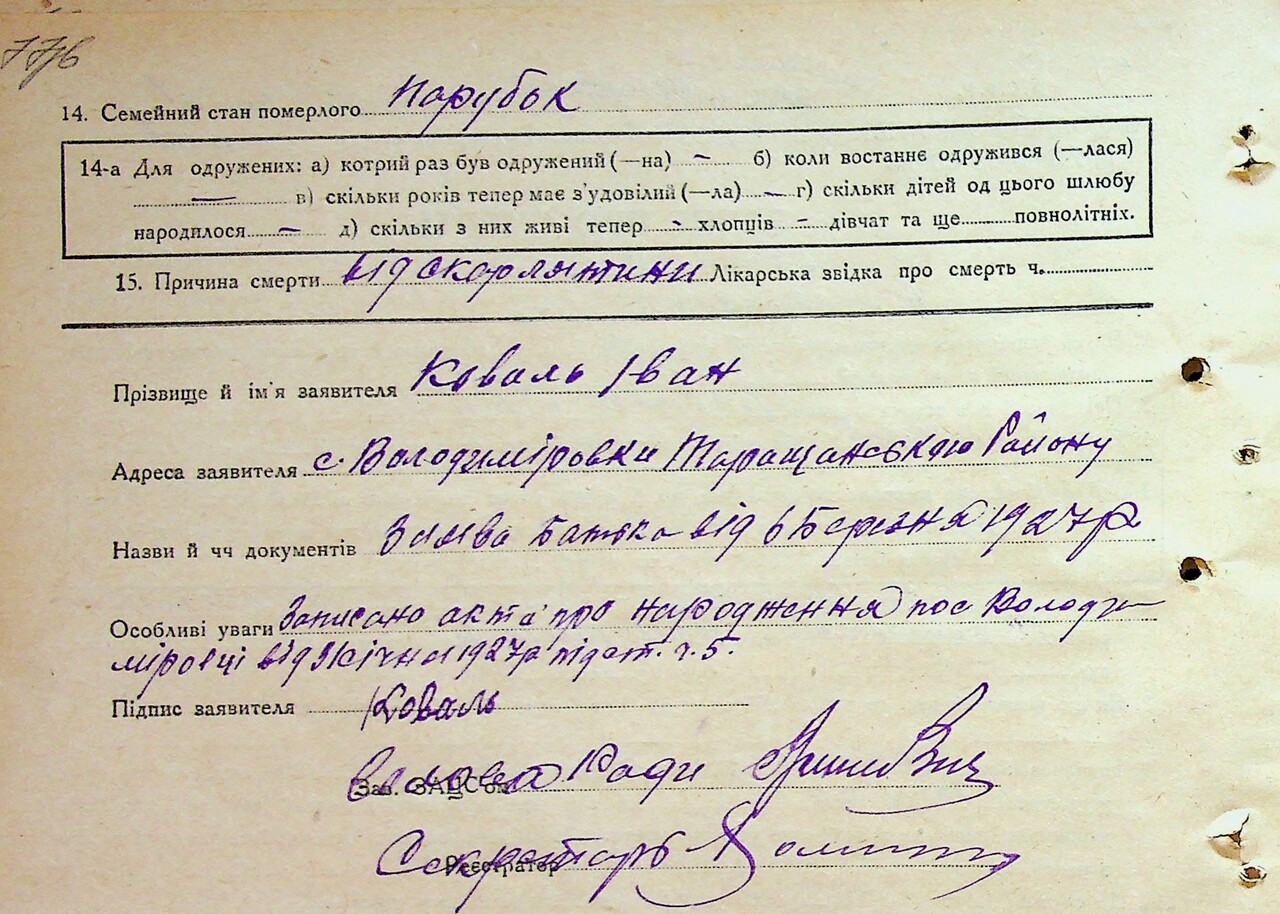 14. Семейний стан померлого парубок
14-а Для одружених: а) котрий раз був одружений (—на) — б) коли востаннє одружився (—лася)
— в) скільки років тепер має з'удовілий (—ла) — г) скільки дітей од цього шлюбу
народилося — д) скільки з них живі тепер - хлопців - дівчат та ще повнолітніх.
15. Причина смерти від скорлятини Лікарська звідка про смерть ч.
Прізвище й ім'я заявителя Коваль Іван
Адреса заявителя с. Володиміровки Таращанського Району
Назви й чч документів Заява Батька від 6 Березня 1927 р
Особливі уваги Записано акта про народження по с Володи-
міровці від січня 1927 р під ч. 5.
Підпис заявителя Коваль
Голова Ради
Зав. ЗАЦСом
Секретарь
Реєстратор